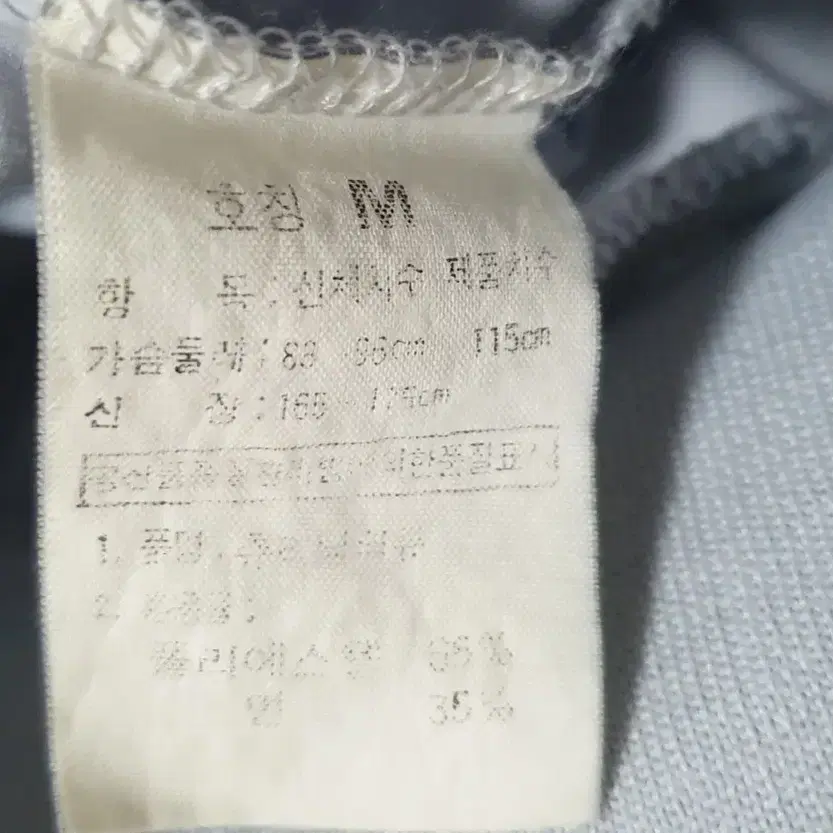 호칭 M
항 목 : 신체치수 제품치수
가슴둘레 : 88 96cm 115cm
신 장 : 165 175cm
품질표시
1. 품명 :
2. :
폴리에스텔 65 %
면 35 %